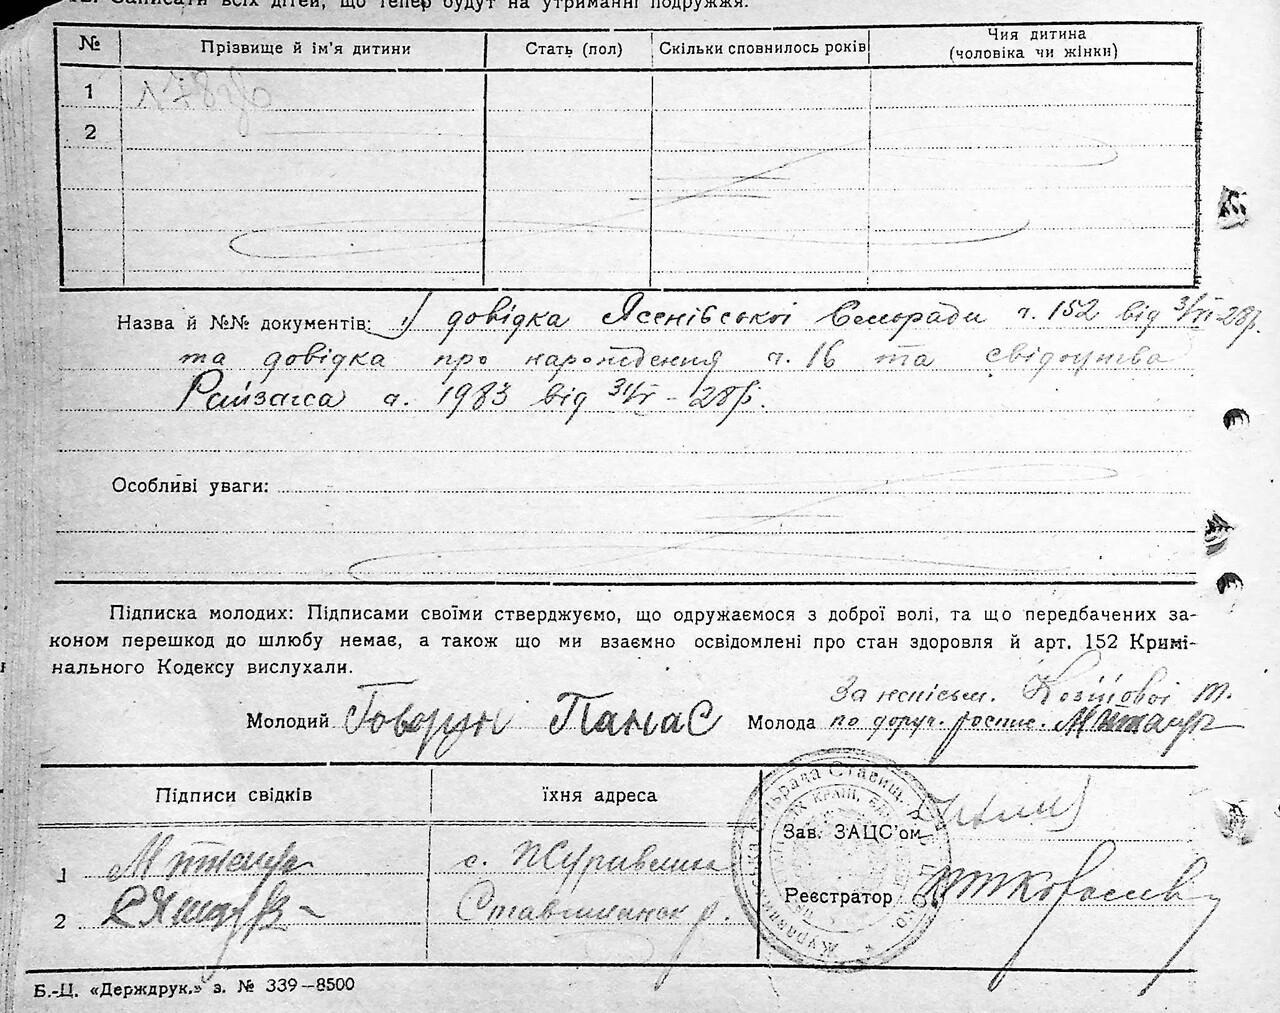 Записати всіх дітей, що тепер будут на утриманні подружжя.
№ Прізвище й ім'я дитини Стать (пол) Скільки сповнилось років Чия дитина
(чоловіка чи жінки)
1
2
Назва й №№ документів: 1) довідка Ясенівської сельради ч. 152 від 31/VI-28р.
та довідка про народження ч. 16 та свідоцтва
Райзагса ч. 1983 від 28р.
Особливі уваги:
Підписка молодих: Підписами своїми стверджуємо, що одружаємося з доброї волі, та що передбачених за-
коном перешкод до шлюбу немає, а також що ми взаємно освідомлені про стан здоровля й арт. 152 Кримі-
нального Кодексу вислухали.
За неписьм. Т.
Молодий Говорун Панас Молода по доруч. роспис.
Підписи свідків їхня адреса
Зав. ЗАЦС'ом
1 с. Журавлиха
Реєстратор
2 Ставищанськ р.
Б.-Ц. «Держдрук.» з. № 339—8500